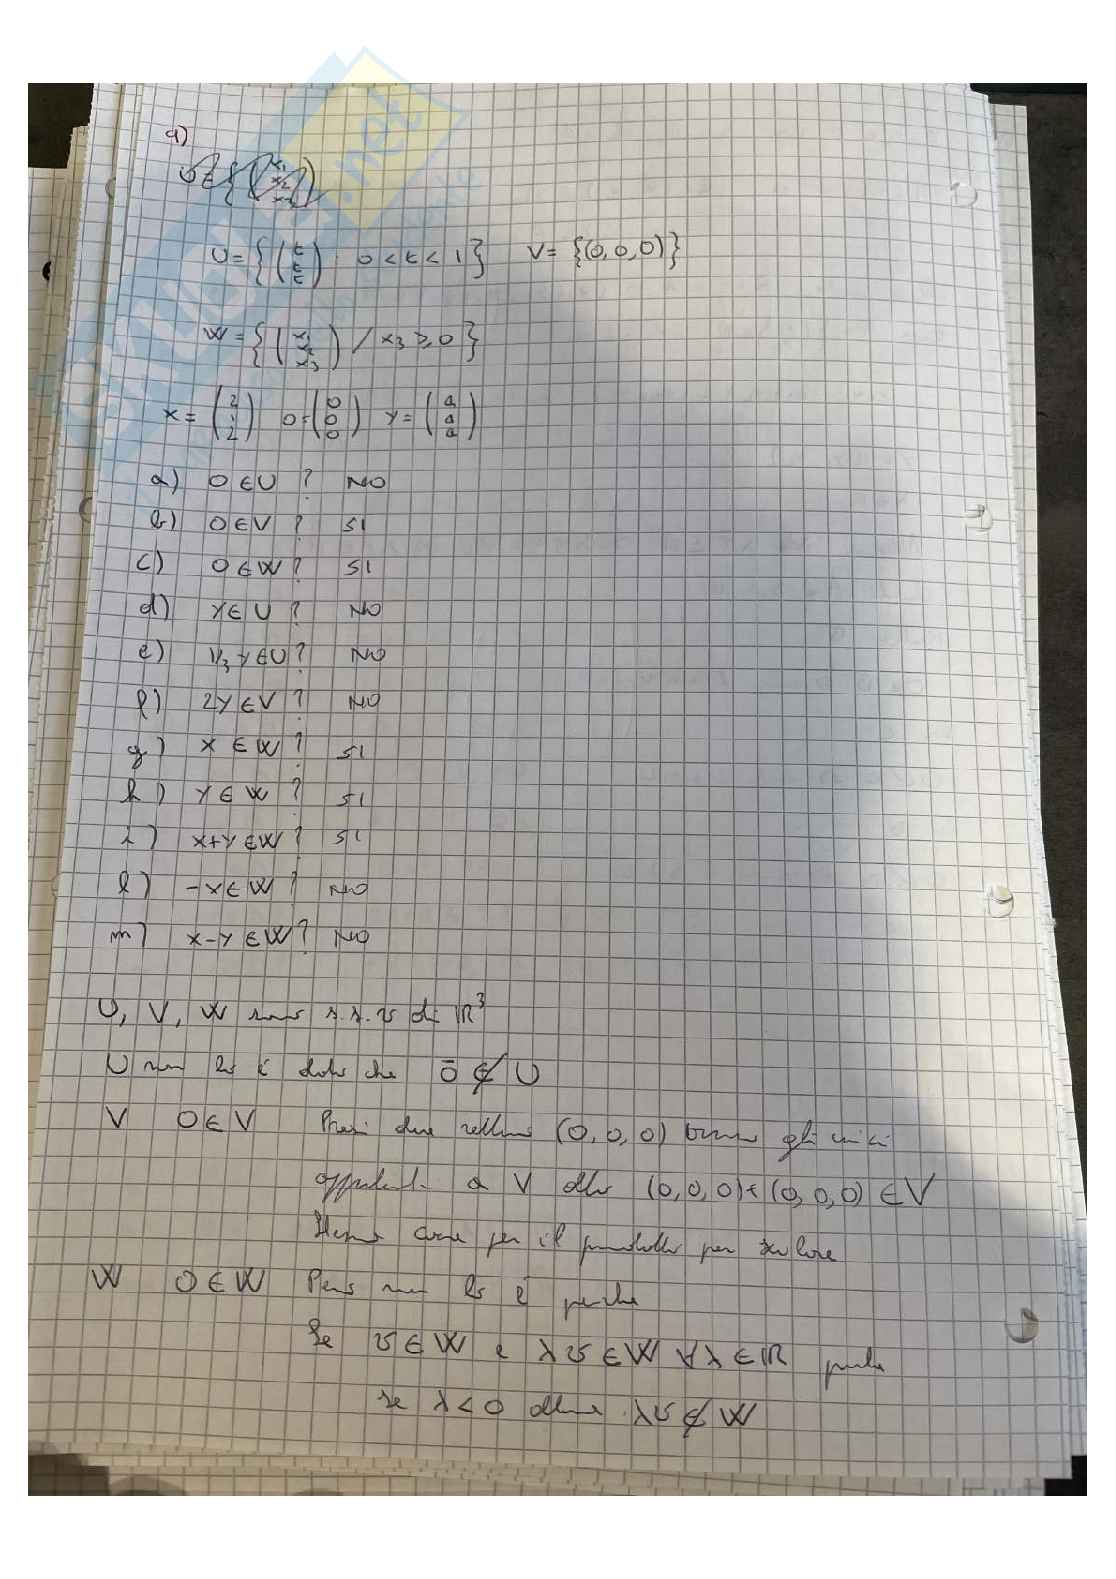 a)
U = { ( t t t ) : 0 < t < 1 } V = {(0,0,0)}
W = { ( x1 x2 x3 ) / x3 ≥ 0 }
x = ( 2 1 2 ) 0 = ( 0 0 0 ) y = ( a a a )
a) 0 ∈ U ? NO
b) 0 ∈ V ? SI
c) 0 ∈ W ? SI
d) Y ∈ U ? NO
e) 1/3 Y ∈ U ? NO
f) 2Y ∈ V ? NO
g) X ∈ W ? SI
h) Y ∈ W ? SI
i) X+Y ∈ W ? SI
l) -X ∈ W ? NO
m) X-Y ∈ W ? NO
U, V, W sono s.s.v di ℝ³
U non lo è dato che 0̄ ∉ U
V 0 ∈ V Presi due vettori (0,0,0) gli unici
appartenenti a V allora (0,0,0)+(0,0,0) ∈ V
Stesso come per il prodotto per scalare
W 0 ∈ W Però non lo è perche
Se v ∈ W e λv ∈ W ∀λ ∈ ℝ perche
se λ<0 allora λv ∉ W